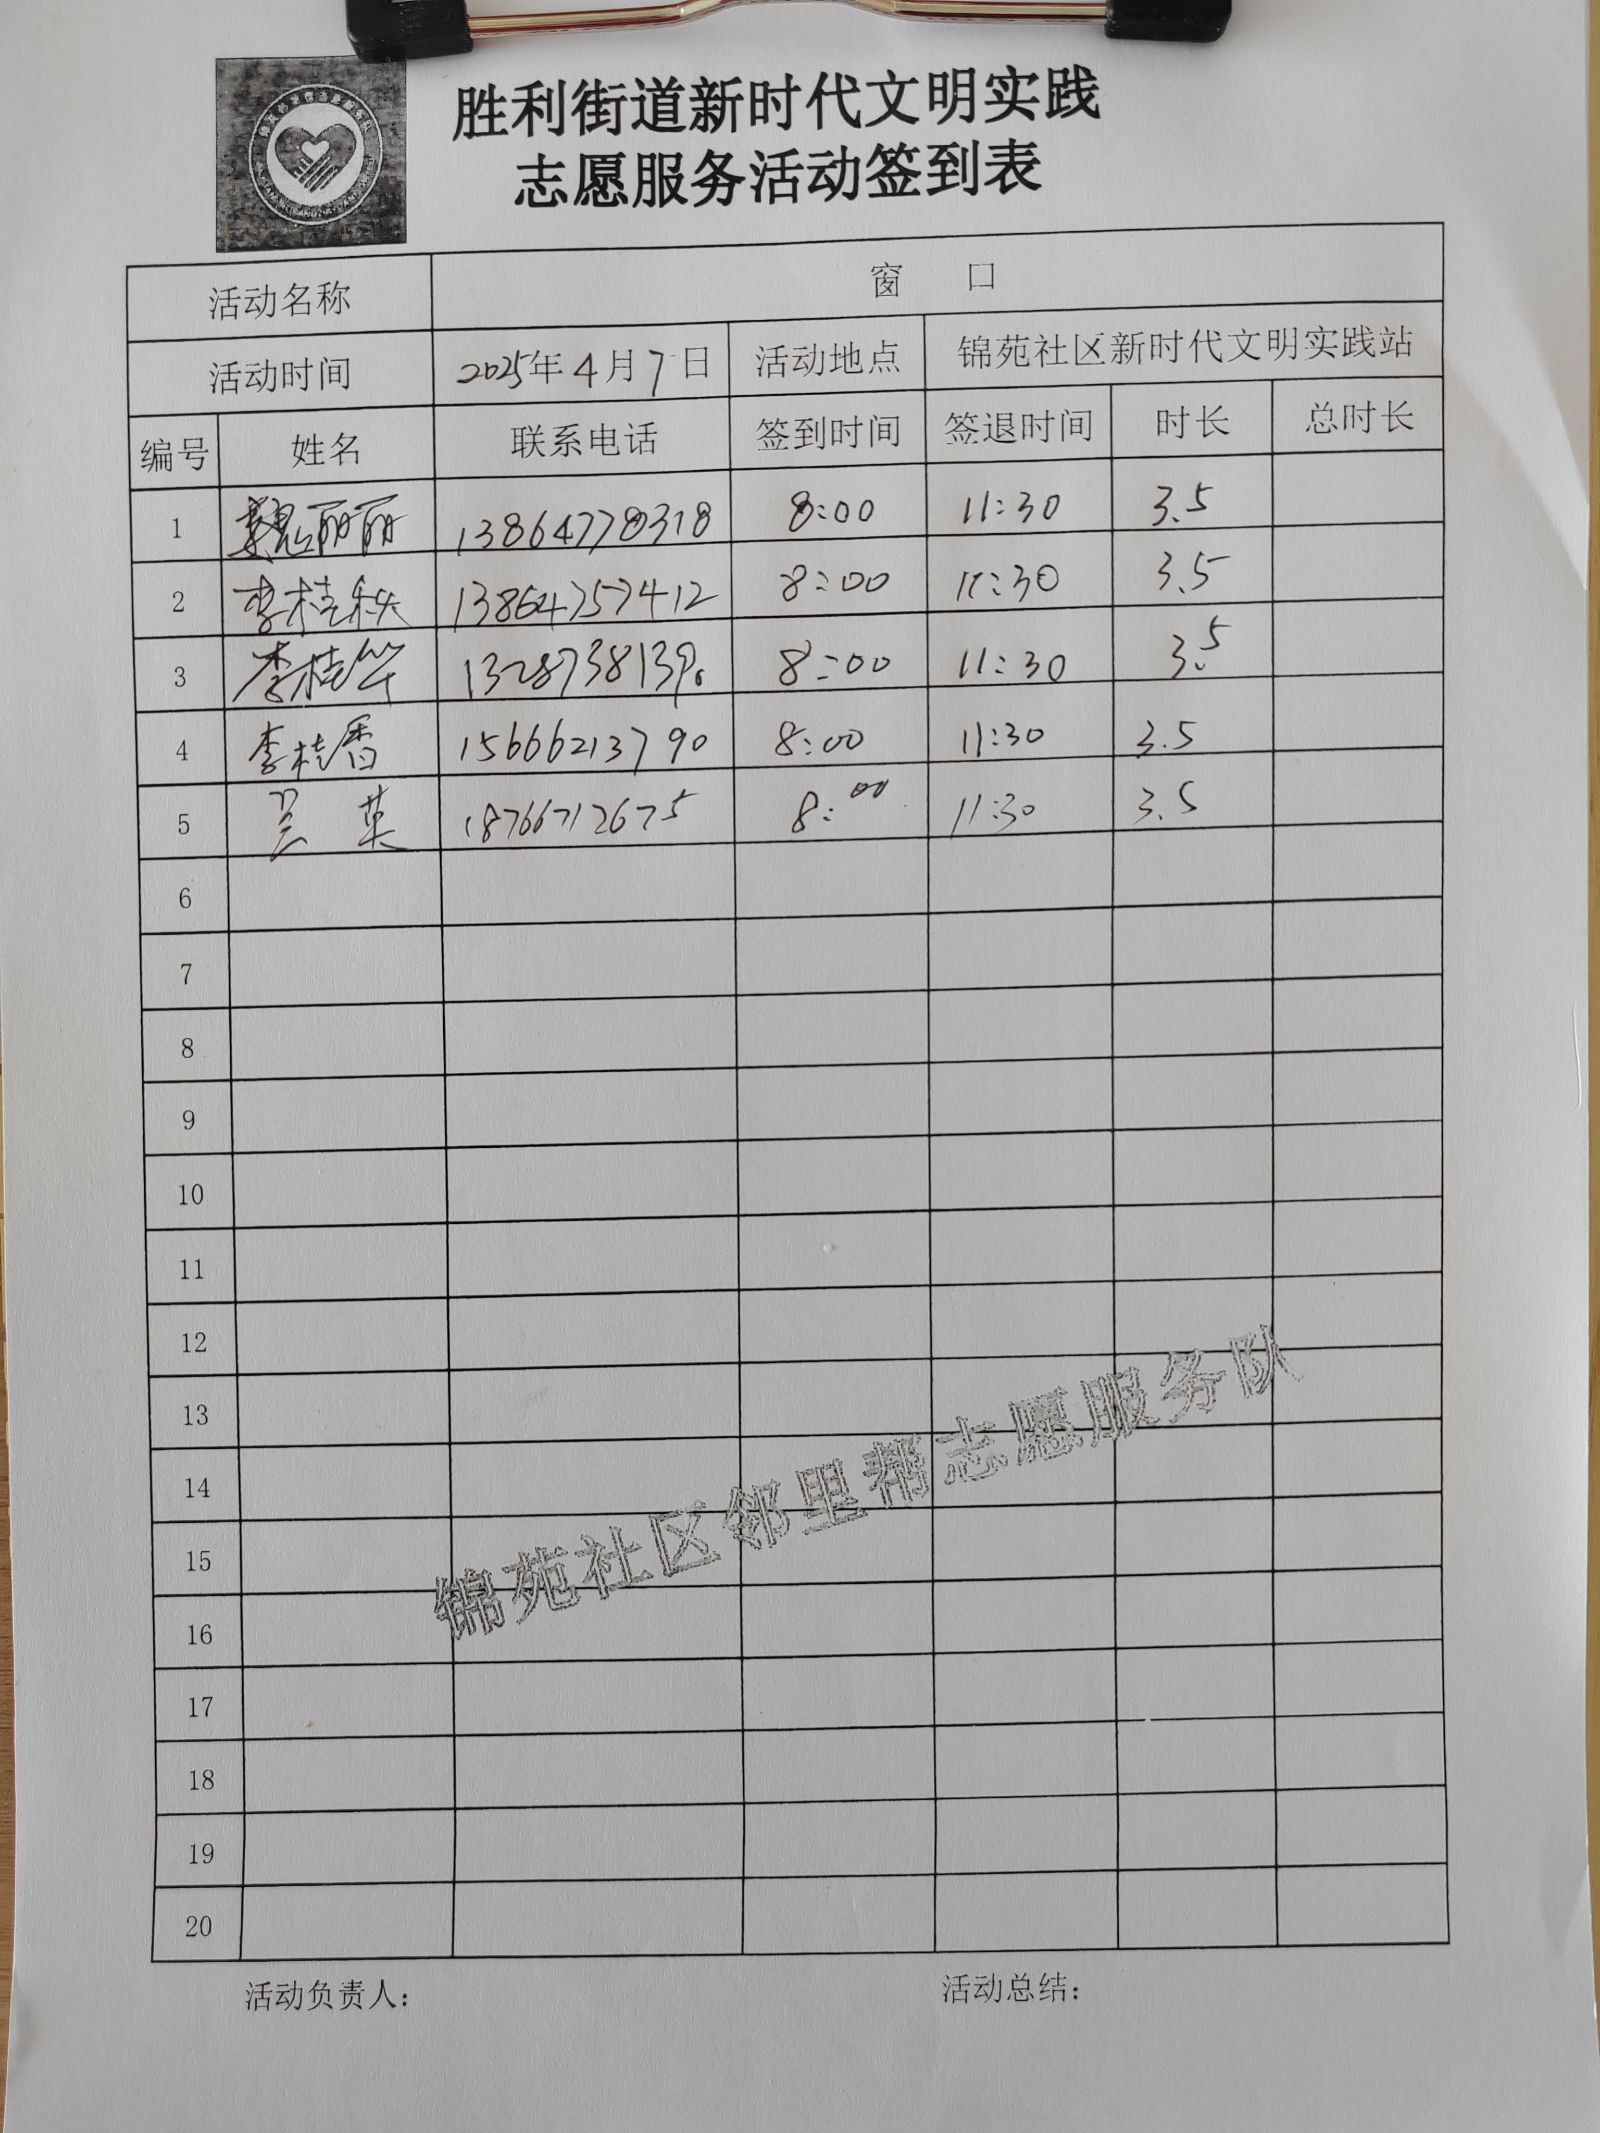 胜利街道新时代文明实践
志愿服务活动签到表
活动名称 窗 口
活动时间 2025年4月7日 活动地点 锦苑社区新时代文明实践站
编号 姓名 联系电话 签到时间 签退时间 时长 总时长
1 魏丽丽 13864778318 8:00 11:30 3.5
2 李桂秋 13864757412 8:00 11:30 3.5
3 李桂华 1328738139 8:00 11:30 3.5
4 李桂香 15666213790 8:00 11:30 3.5
5 吴英 18766712675 8:00 11:30 3.5
6
7
8
9
10
11
12
13
14
15
16
17
18
19
20
锦苑社区邻里帮志愿服务队
活动负责人： 活动总结：